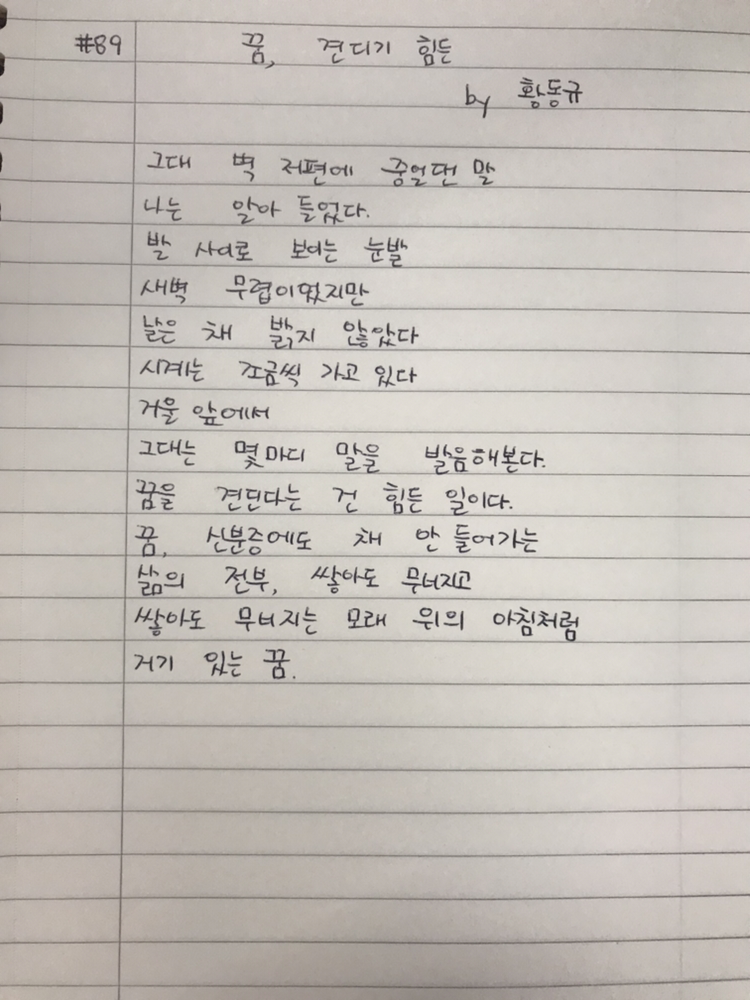 #89 꿈, 견디기 힘든
by 황동규
그대 벽 저편에 중얼댄 말
나는 알아 들었다.
발 사이로 보이는 눈발
새벽 무렵이였지만
날은 채 밝지 않았다
시계는 조금씩 가고 있다
거울 앞에서
그대는 몇마디 말을 발음해본다.
꿈을 견딘다는 건 힘든 일이다.
꿈, 신분증에도 채 안 들어가는
삶의 전부, 쌓아도 무너지고
쌓아도 무너지는 모래 위의 아침처럼
거기 있는 꿈.